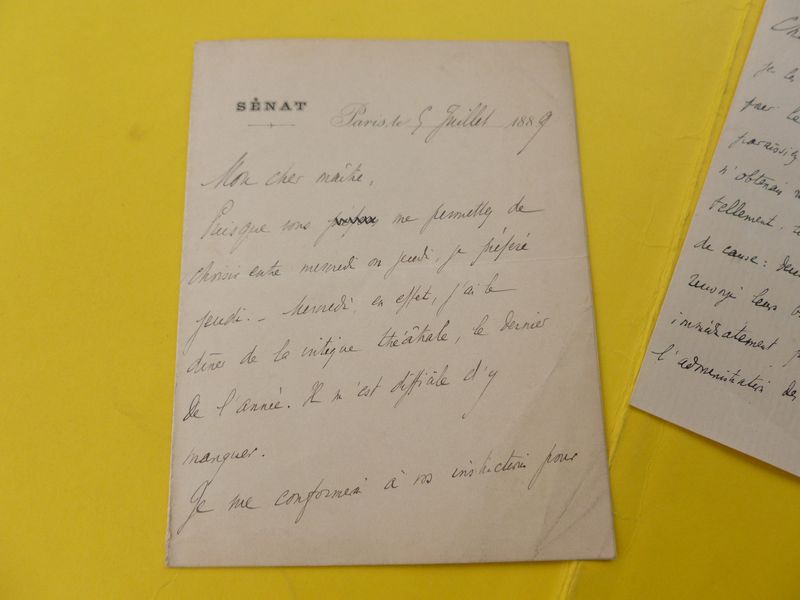 SÉNAT
Paris, le 5 Juillet 1889
Mon cher maître,
Puisque vous me permettez de
choisir entre mercredi ou jeudi, je préfère
jeudi. _ Mercredi, en effet, j'ai le
dîner de la critique théâtrale, le dernier
de l'année. Il m'est difficile d'y
manquer.
Je me conformerai à vos instructions pour
Che
je les
par le
n'obtenais
tellement,
de cause :
leurs
immédiatement
l'administration des